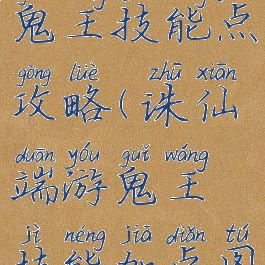 鬼王技能点
gōng lüè zhū xiān
攻略(诛仙
duān yóu guǐ wáng
端游鬼王
jì néng jiā diǎn tú
技能加点图